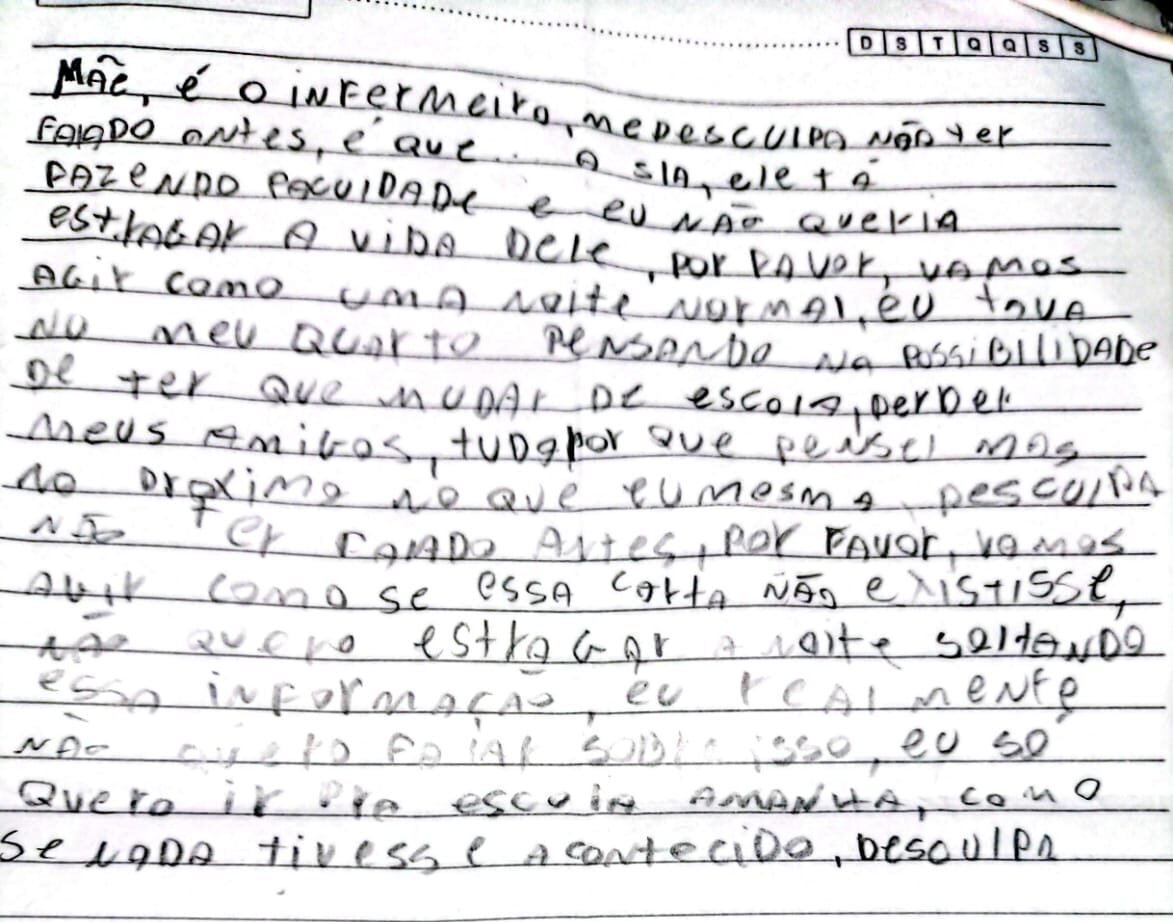 D S T Q Q S S
MÃe, é o infermeiro, me desculpa não ter
falado antes, é que... a sla, ele tá
fazendo faculdade e eu não queria
estragar a vida dele, por favor, vamos
agir como uma noite normal, eu tava
no meu quarto pensando na possibilidade
de ter que mudar de escola, perder
meus amigos, tudo por que pensei mas
no proximo no que eu mesma, desculpa
não ter falado antes, por favor, vamos
agir como se essa carta não existisse,
não quero estragar a noite soltando
essa informação, eu realmente
não quero falar sobre isso, eu só
quero ir pra escola amanha, como
se nada tivesse acontecido, desculpa